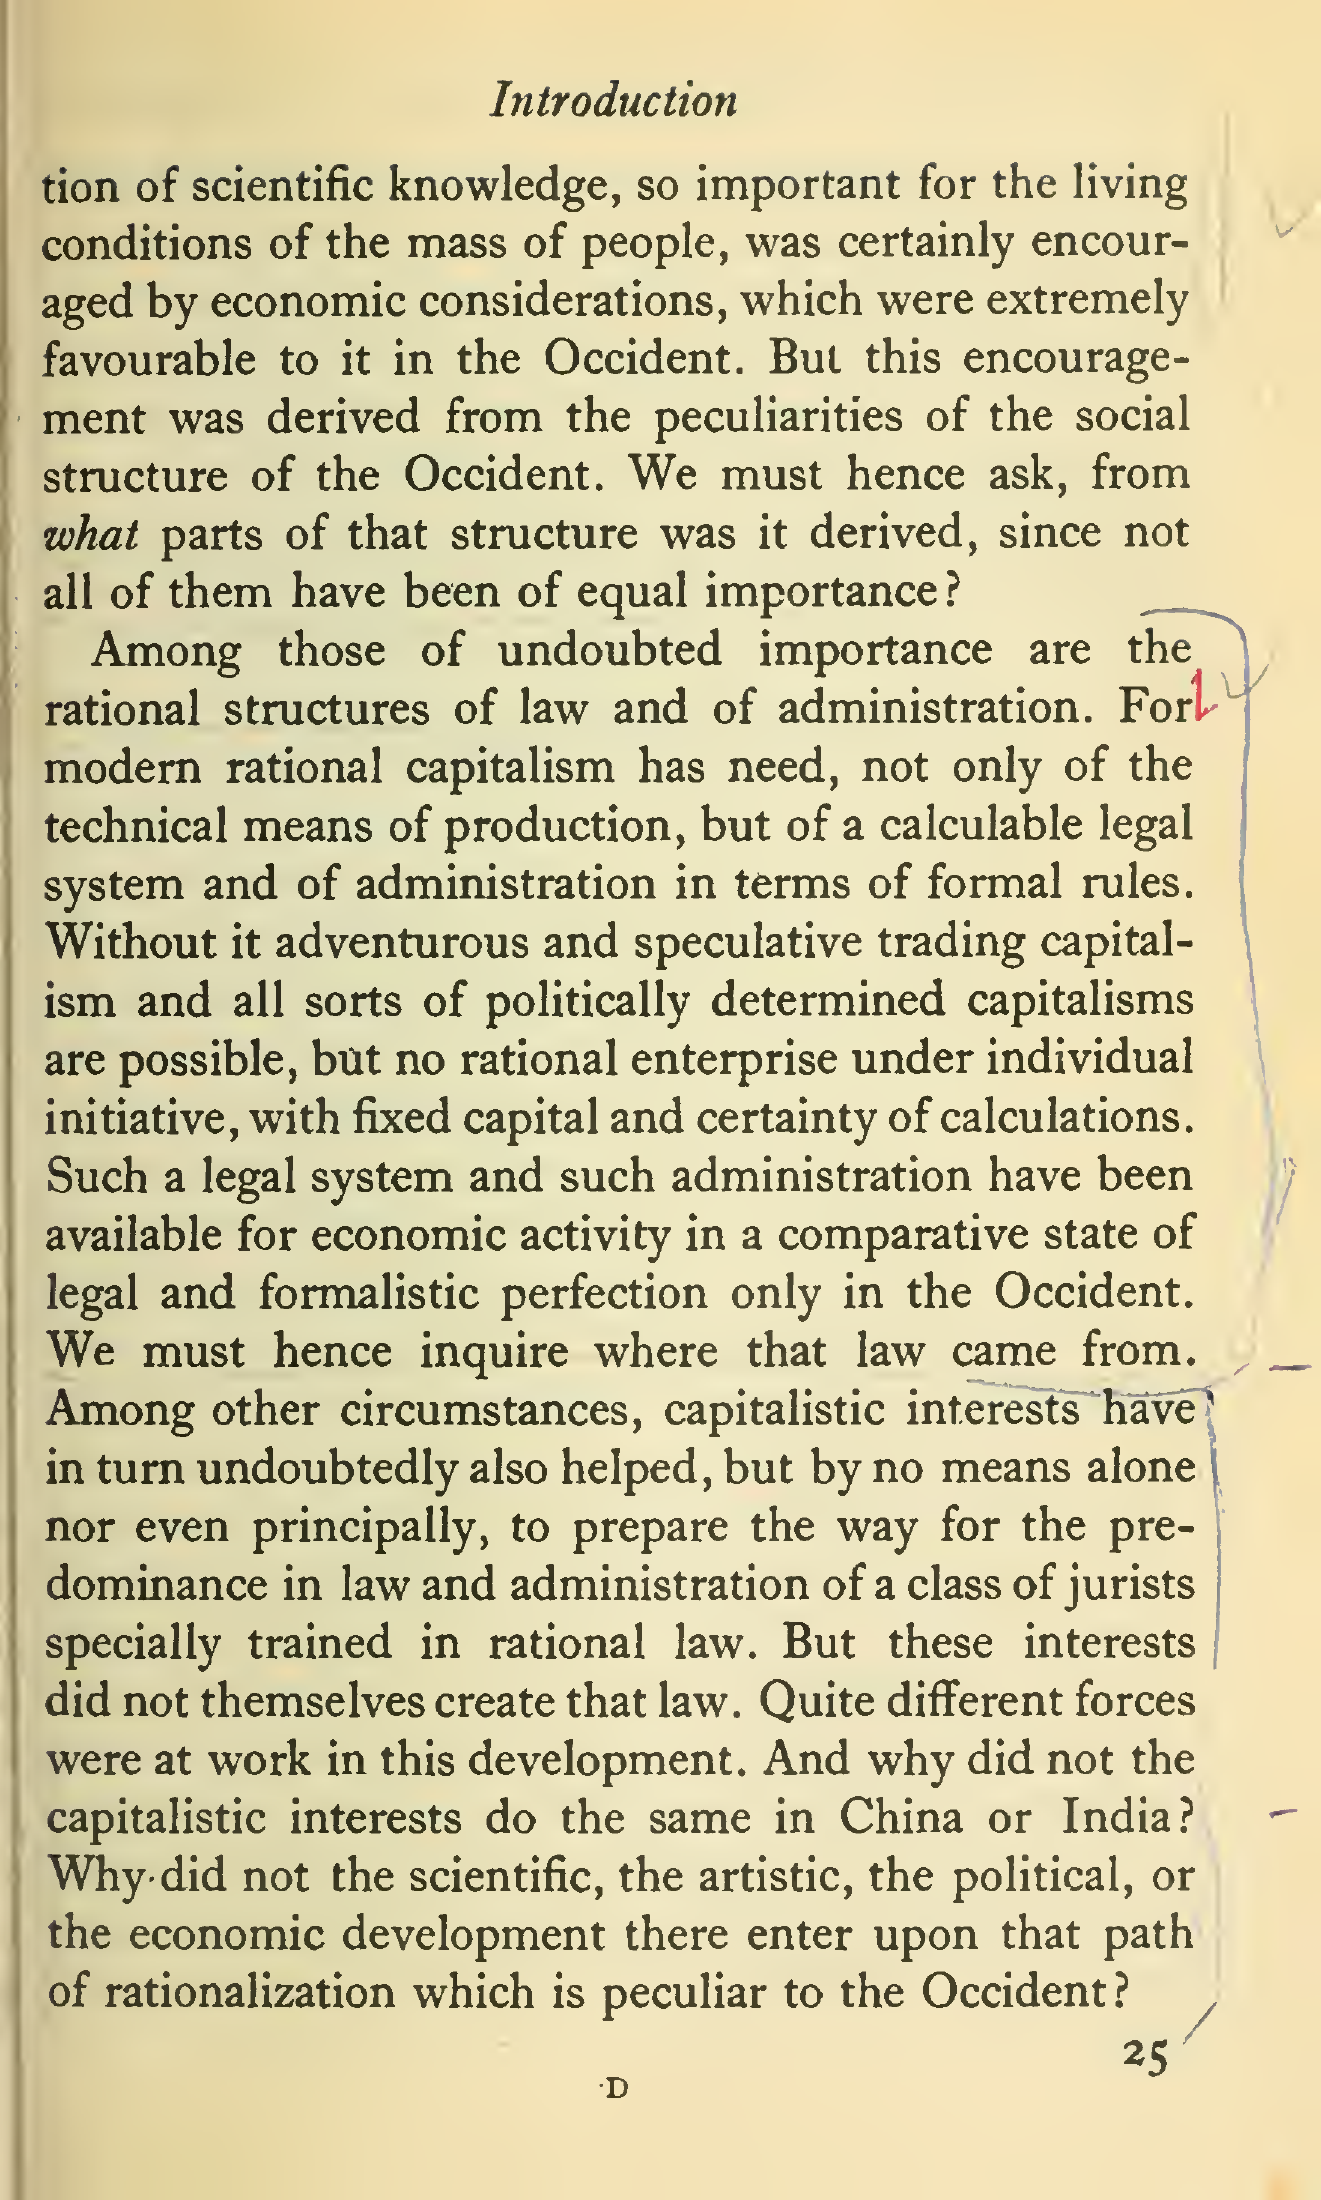 Introduction
tion of scientific knowledge, so important for the living
conditions of the mass of people, was certainly encour-
aged by economic considerations, which were extremely
favourable to it in the Occident. But this encourage-
ment was derived from the peculiarities of the social
structure of the Occident. We must hence ask, from
what parts of that structure was it derived, since not
all of them have been of equal importance?
Among those of undoubted importance are the
rational structures of law and of administration. For
modern rational capitalism has need, not only of the
technical means of production, but of a calculable legal
system and of administration in terms of formal rules.
Without it adventurous and speculative trading capital-
ism and all sorts of politically determined capitalisms
are possible, but no rational enterprise under individual
initiative, with fixed capital and certainty of calculations.
Such a legal system and such administration have been
available for economic activity in a comparative state of
legal and formalistic perfection only in the Occident.
We must hence inquire where that law came from.
Among other circumstances, capitalistic interests have
in turn undoubtedly also helped, but by no means alone
nor even principally, to prepare the way for the pre-
dominance in law and administration of a class of jurists
specially trained in rational law. But these interests
did not themselves create that law. Quite different forces
were at work in this development. And why did not the
capitalistic interests do the same in China or India?
Why did not the scientific, the artistic, the political, or
the economic development there enter upon that path
of rationalization which is peculiar to the Occident?
25
D